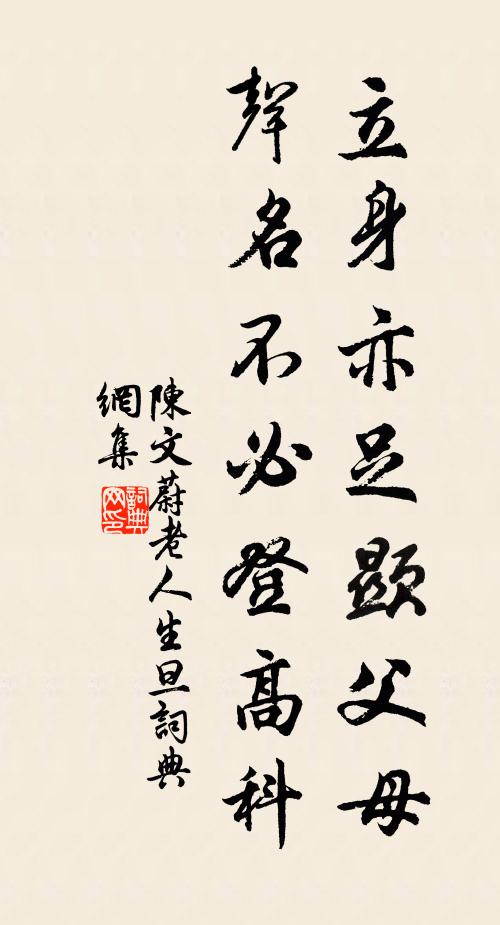 立身亦足顯父母
聲名不必登高科
陳文蔚老人生旦詞典
網集
詞典
网印